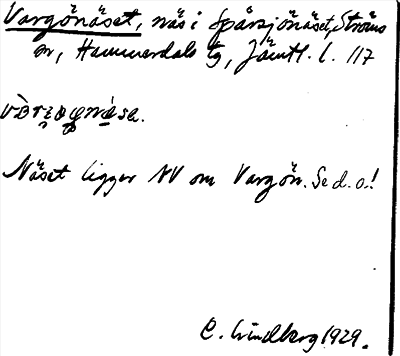 Vargönäset, näs i Sparsjönäset, Ströms
sn, Hammerdals tg, Jämtl. l. 117
Näset ligger NV om Vargön. Se d. o.!
C. Lindberg 1929.